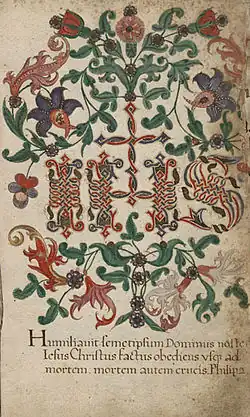 IHS
Humiliauit semetipsum Dominus noste
Iesus Christus factus obediens vsq; ad
mortem, mortem autem crucis. Philip 2